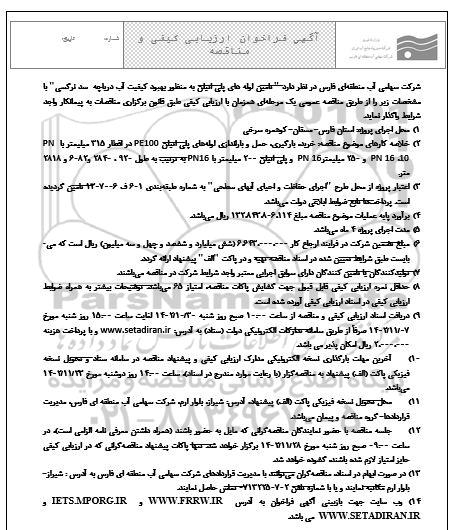 آگهی فراخوان ارزیابی کیفی و مناقصه
شماره:
تاریخ:
شرکت سهامی آب منطقه‌ای فارس در نظر دارد "تامین لوله های پلی اتیلن به منظور بهبود کیفیت آب دریاچه سد نرگسی" با
مشخصات زیر را از طریق مناقصه عمومی یک مرحله‌ای همزمان با ارزیابی کیفی طبق قانون برگزاری مناقصات به پیمانکار واجد
شرایط واگذار نماید.
۱) محل اجرای پروژه: استان فارس- - کوهمره سرخی
۲) خلاصه کارهای موضوع مناقصه: خرید، بارگیری، حمل و باراندازی لوله‌های پلی اتیلن PE100 در اقطار ۳۱۵ میلیمتر با PN
10، PN 16 و ۲۵۰ میلیمتر PN16 و پلی اتیلن ۲۰۰ میلیمتر با PN16 به ترتیب به طول
متر.
۳) اعتبار پروژه از محل طرح "اجرای حفاظت و احیای آبهای سطحی" به شماره طبقه‌بندی تامین گردیده
است. پرداخت‌ها تابع ضوابط ابلاغی دولت می‌باشد.
۴) برآورد پایه عملیات موضوع مناقصه مبلغ ریال می‌باشد.
۵) مدت اجرای پروژه ۴ ماه می‌باشد.
۶) مبلغ تضمین شرکت در فرایند ارجاع کار ۶.۶۴۳.۰۰۰.۰۰۰ (شش میلیارد و ششصد و چهل و سه میلیون) ریال است که می-
بایست طبق شرایط تعیین شده در اسناد مناقصه تهیه و در پاکت "الف" پیشنهاد ارائه گردد.
۷) تولیدکنندگان یا تامین کنندگان دارای سوابق اجرایی معتبر واجد شرایط شرکت در مناقصه می‌باشند.
۸) حداقل نمره ارزیابی کیفی قابل قبول جهت گشایش پاکات مناقصه، امتیاز ۶۵ می‌باشد. توضیحات بیشتر به همراه ضوابط
ارزیابی کیفی در اسناد ارزیابی کیفی آورده شده است.
۹) دریافت اسناد ارزیابی کیفی و مناقصه از ساعت ۱۰:۰۰ صبح روز شنبه لغایت ساعت ۱۵:۰۰ روز شنبه مورخ
صرفاً از طریق سامانه تدارکات الکترونیکی دولت (ستاد) به آدرس: www.setadiran.ir و با پرداخت هزینه
ریال امکان پذیر می باشد.
۱۰) آخرین مهلت بارگذاری نسخه الکترونیکی مدارک ارزیابی کیفی و پیشنهاد مناقصه در سامانه ستاد و تحویل نسخه
فیزیکی پاکت (الف) پیشنهاد به مناقصه‌گزار (با رعایت موارد مندرج در اسناد)، ساعت ۱۴:۰۰ روز دوشنبه مورخ
می‌باشد.
۱۱) محل تحویل نسخه فیزیکی پاکت (الف) پیشنهاد، آدرس: شیراز، بلوار ارم، شرکت سهامی آب منطقه ای فارس، مدیریت
قراردادها- گروه مناقصه و پیمان می‌باشد.
۱۲) جلسه مناقصه با حضور نمایندگان مناقصه‌گرانی که مایل به حضور باشند (همراه داشتن معرفی نامه الزامی است)، در
ساعت ۹:۰۰ صبح روز شنبه مورخ برگزار خواهد شد. تنها پاکات پیشنهاد مناقصه‌گرانی که در ارزیابی کیفی
حایز امتیاز لازم شده باشند، گشوده خواهد شد.
۱۳) در صورت ابهام در اسناد، مناقصه‌گران می‌توانند با مدیریت قراردادهای شرکت سهامی آب منطقه ای فارس به آدرس : شیراز-
بلوار ارم مکاتبه نمایند و یا با شماره تلفن تماس حاصل نمایند.
۱۴) وب سایت جهت بازبینی آگهی فراخوان به آدرس WWW.FRRW.IR و IETS.MPORG.IR و
WWW.SETADIRAN.IR می باشد.